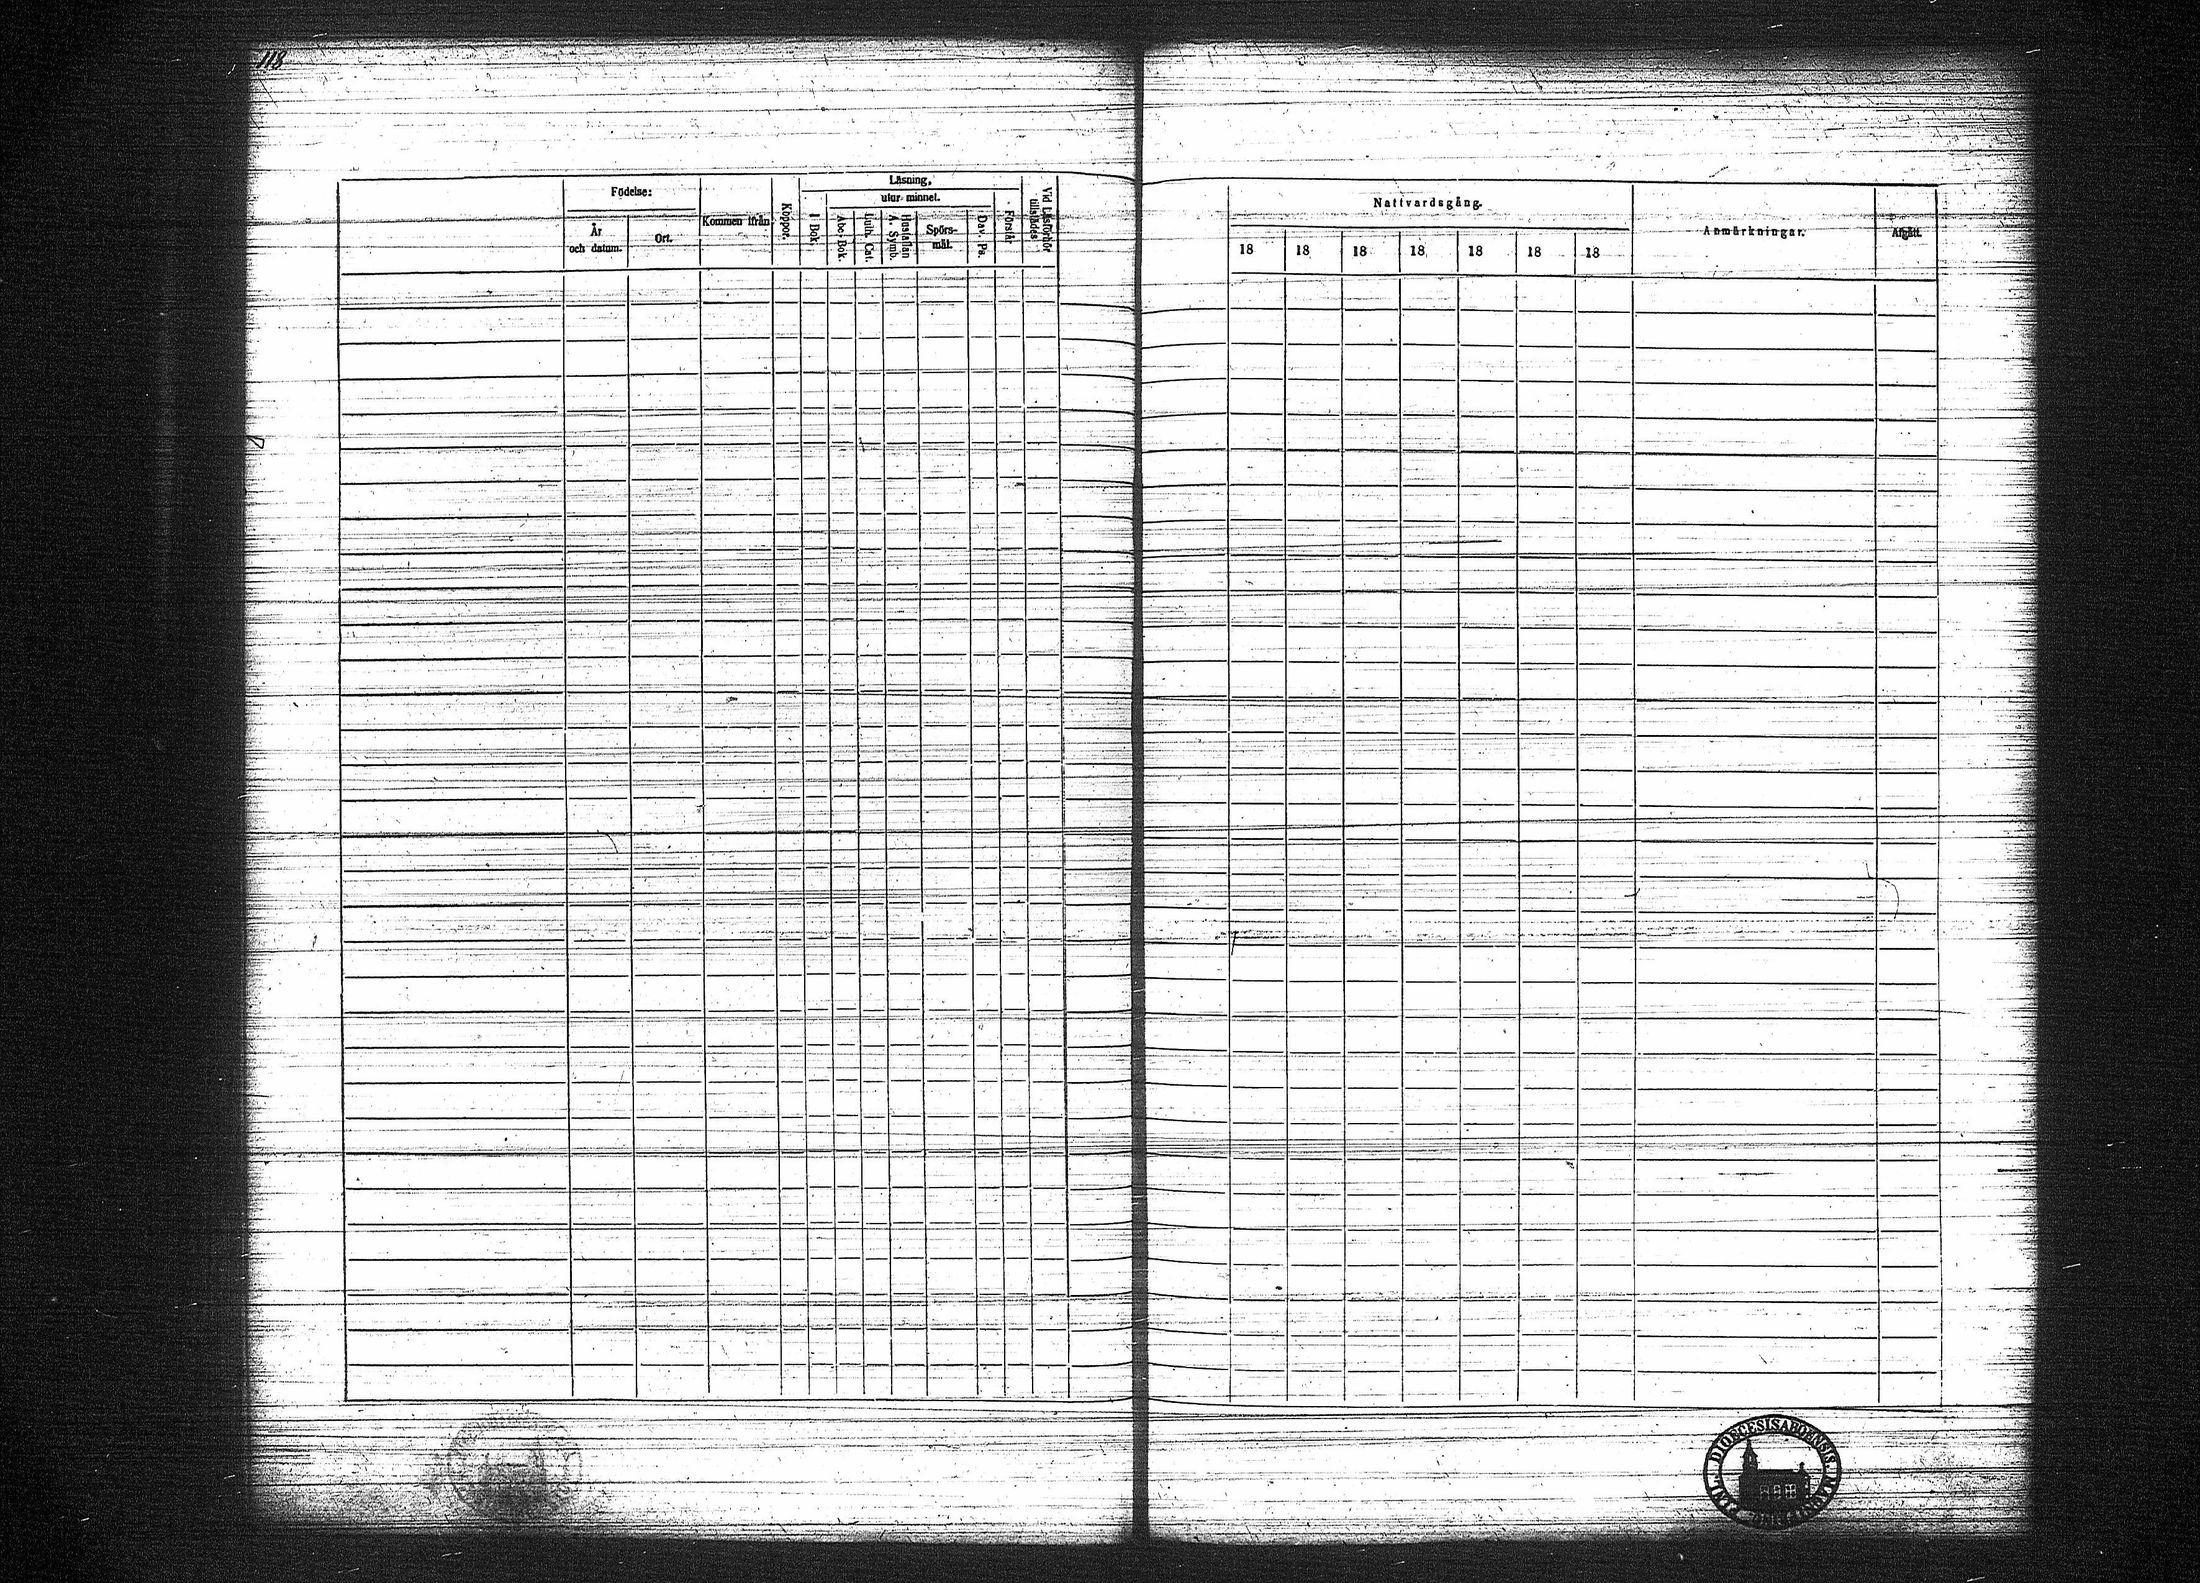 118
Födelse:
År
och datum.
Ort.
Kommen ifrån
Koppor.
Läsning,
utur minnet.
I Bok.
Abc-Bok.
Luth. Cat.
Hustaflan
A. Symb.
Spörs-
mål.
Dav. Ps.
Förstår
Vid Läsförhör
tillstädes
Nattvardsgång.
18 18 18 18 18 18 18
Anmärkningar.
Afgått.
DIOECESIS ABOENSIS